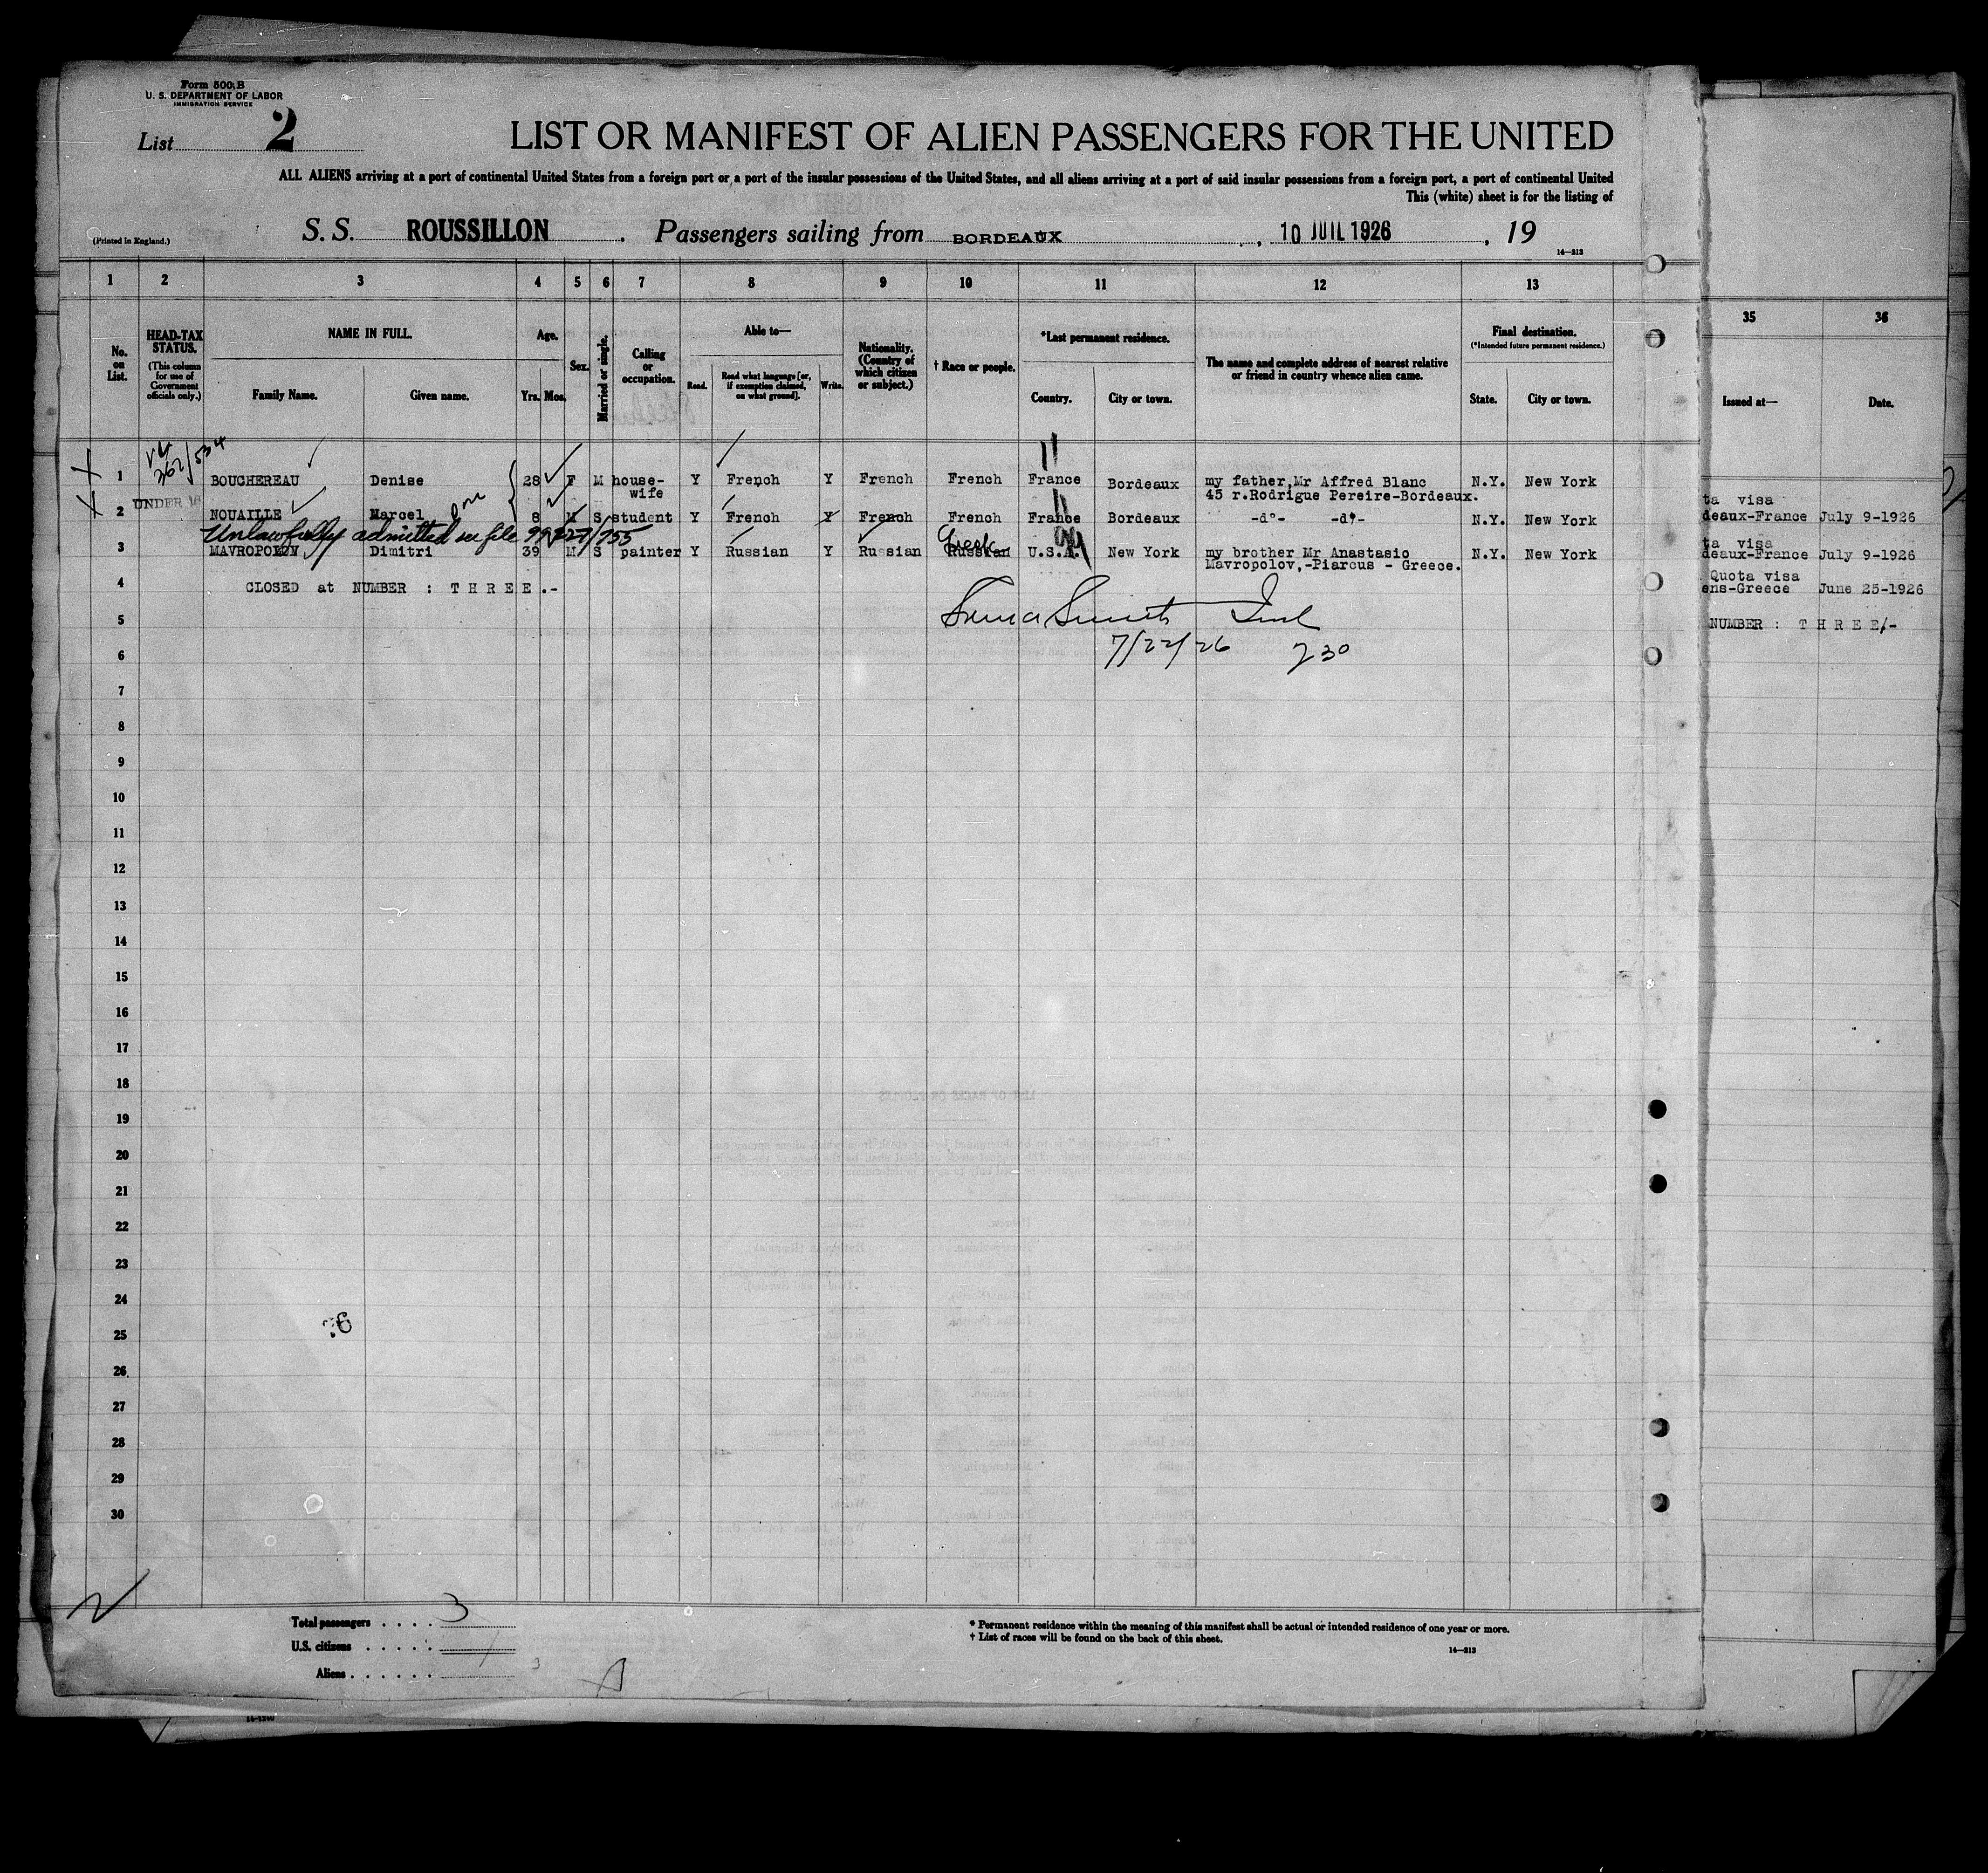 Form 500 B
U. S. DEPARTMENT OF LABOR
IMMIGRATION SERVICE
List 2
LIST OR MANIFEST OF ALIEN PASSENGERS FOR THE UNITED
ALL ALIENS arriving at a port of continental United States from a foreign port or a port of the insular possessions of the United States, and all aliens arriving at a port of said insular possessions from a foreign port, a port of continental United
This (white) sheet is for the listing of
(Printed in England.)
S. S. ROUSSILLON . Passengers sailing from BORDEAUX , 10 JUIL 1926 , 19
14—213
1 2 3 4 5 6 7 8 9 10 11 12 13
35 36
No. on List.
HEAD-TAX STATUS.
(This column for use of Government officials only.)
NAME IN FULL.
Family Name. Given name.
Age.
Yrs. Mos.
Sex.
Married or single.
Calling or occupation.
Able to—
Read. Read what language [or, if exemption claimed, on what ground]. Write.
Nationality. (Country of which citizen or subject.)
† Race or people.
*Last permanent residence.
Country. City or town.
The name and complete address of nearest relative or friend in country whence alien came.
Final destination.
(*Intended future permanent residence.)
State. City or town.
Issued at— Date.
262/534
1 BOUCHEREAU Denise 28 F M house-wife Y French Y French French France Bordeaux my father,Mr Affred Blanc N.Y. New York
45 r.Rodrigue Pereire-Bordeaux.
11
UNDER 16
2 NOUAILLE Marcel son 8 M S student Y French Y French French France Bordeaux -d°- -d°- N.Y. New York
11
ta visa
deaux-France July 9-1926
Unlawfully admitted see file 99227/755
3 MAVROPOLOV Dimitri 39 M S painter Y Russian Y Russian Russian Greek U.S.A. New York my brother Mr Anastasio N.Y. New York
Mavropolov,-Piarcus - Greece.
ta visa
deaux-France July 9-1926
4 CLOSED at NUMBER : T H R E E .-
Quota visa
ens-Greece June 25-1926
5
NUMBER : T H R E E/-
Smith
7/22/26 230
6
7
8
9
10
11
12
13
14
15
16
17
18
19
20
21
22
23
24
25
26
27
28
29
30
Total passengers . . . . 3
U.S. citizens . . . . .
Aliens . . . . . . 3
* Permanent residence within the meaning of this manifest shall be actual or intended residence of one year or more.
† List of races will be found on the back of this sheet.
14—213